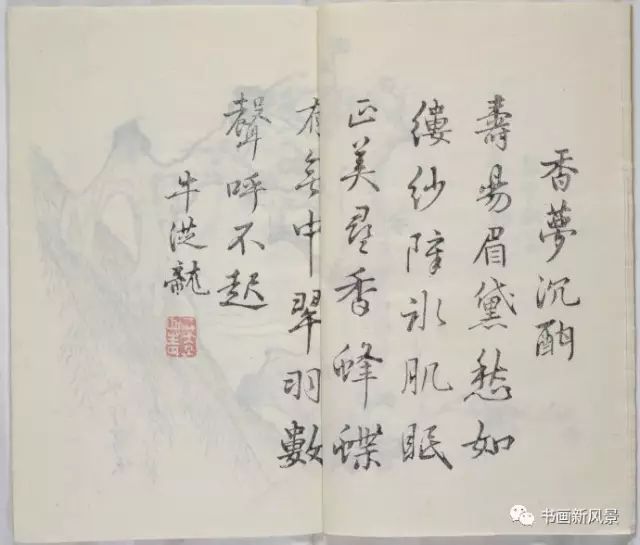 香夢沉酣
壽昜眉黛愁如
縷紗障冰肌眠
正美尋香蜂蝶
有無中翠羽數
聲呼不起
牛
书画新风景